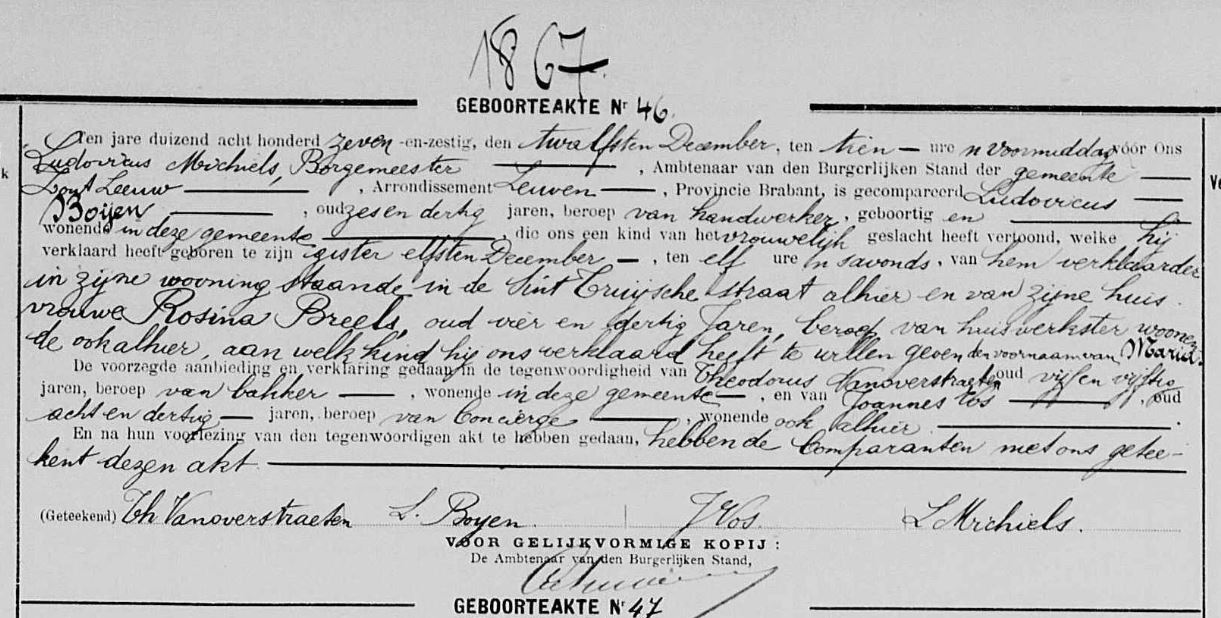 1867
GEBOORTEAKTE Nr 46.
Ten jare duizend acht honderd zeven-en-zestig, den twalfsten December, ten tien ure 's voormiddags vóór Ons
Ludovicus Michiels, Borgemeester, Ambtenaar van den Burgerlijken Stand der gemeente
k Zout Leeuw, Arrondissement Leuven, Provincie Brabant, is gecompareerd Ludovicus
Boijen, oud zes en dertig jaren, beroep van handwerker, geboortig en
wonende in deze gemeente, die ons een kind van het vrouwelijk geslacht heeft vertoond, welke hij
verklaard heeft geboren te zijn gister elfsten December, ten elf ure 's avonds, van hem verklaarder
in zijne wooning staande in de Sint Truijsche straat alhier en van zijne huis
vrouwe Rosina Breels, oud vier en dertig Jaren, beroep van huiswerkster woonen
de ook alhier, aan welk kind hij ons verklaard heeft te willen geven den voornaam van Maria.
De voorzegde aanbieding en verklaring gedaan in de tegenwoordigheid van Theodorus Vanoverstraeten oud vijf en vijftig
jaren, beroep van bakker, wonende in deze gemeente, en van Joannes Vos, oud
acht en dertig jaren, beroep van Concierge, wonende ook alhier.
En na hun voorlezing van den tegenwoordigen akt te hebben gedaan, hebben de Comparanten met ons getee-
kent dezen akt
(Geteekend) Th Vanoverstraeten L. Boyen. J Vos. L Michiels.
VOOR GELIJKVORMIGE KOPIJ :
De Ambtenaar van den Burgerlijken Stand,
GEBOORTEAKTE Nr 47